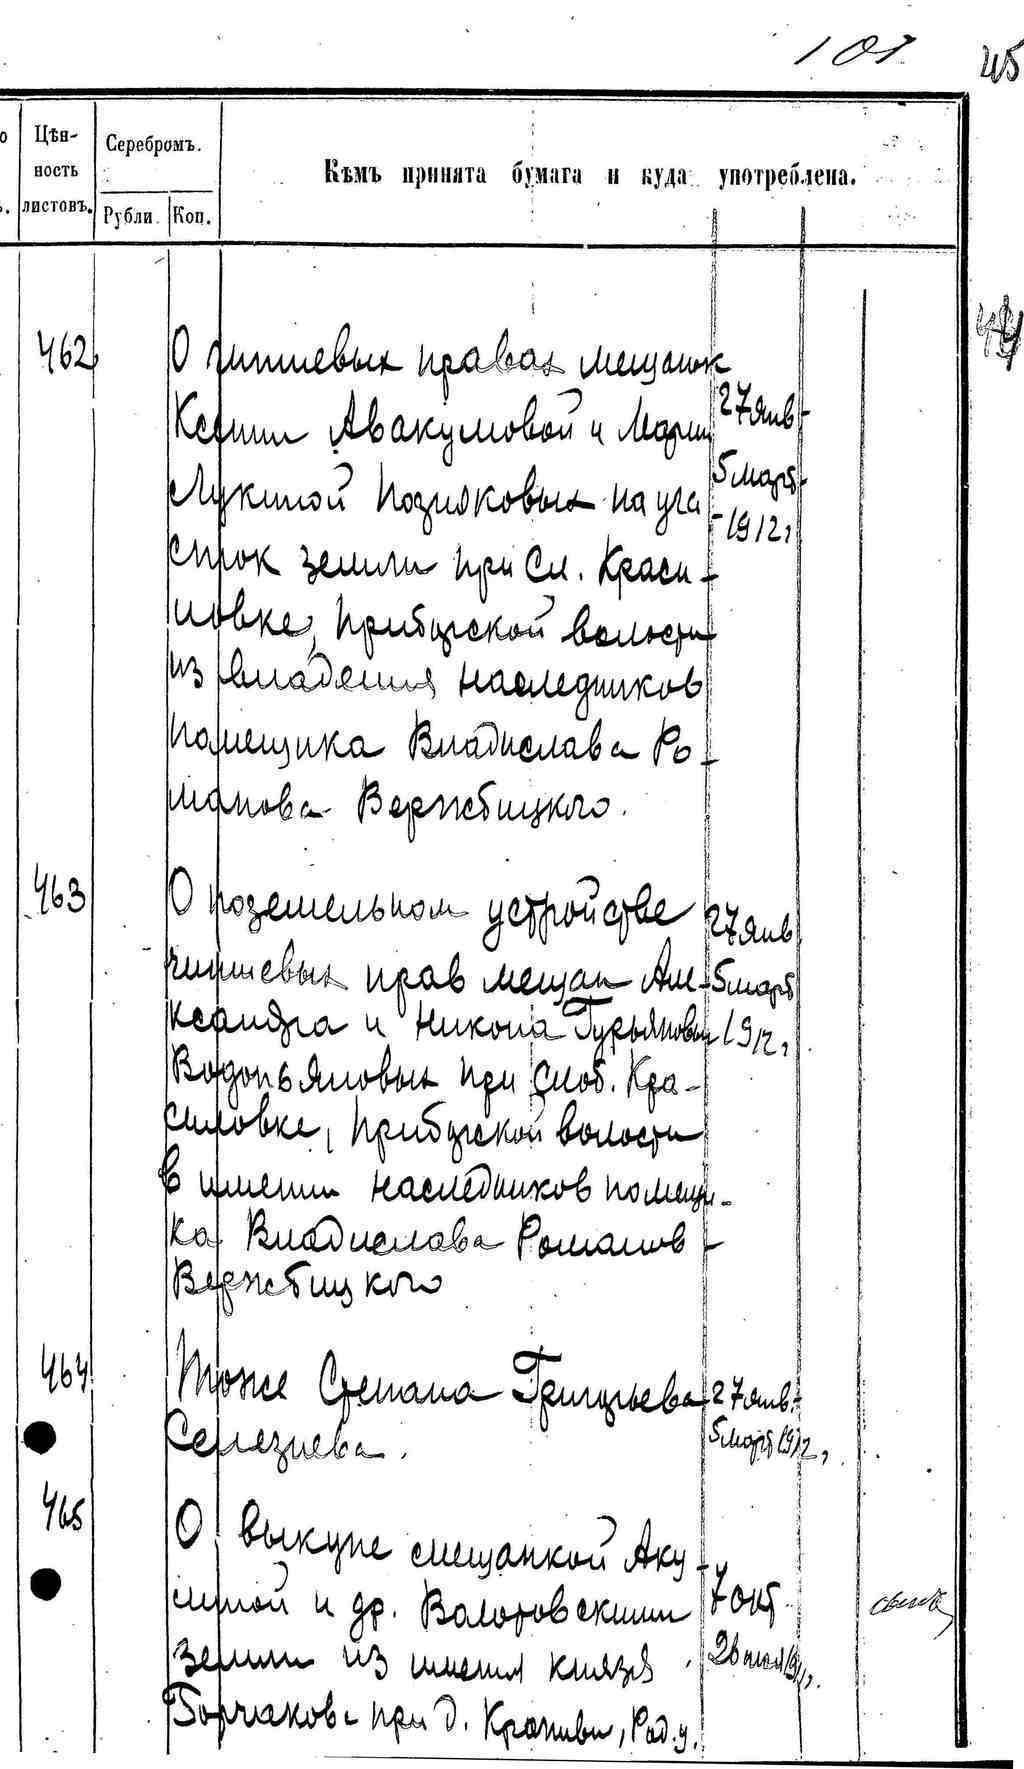 101
45
Цѣн-
ность
листовъ.
Серебромъ.
Рубли.
Коп.
Кѣмъ принята бумага и куда употреблена.
44
462
О чиншевых правах мещанок
Ксении Авакумовой и Марии
Лукиной Позняковых на уча
сток земли при сл. Краси-
ловке, Прибугской волости
из владения наследников
помещика Владислава Ро-
манова Вержбицкого.
27 янв-
5 март-
-1912 г
463
О поземельном устройстве
чиншевых прав мещан Але-
ксандра и Никона Гурьяновых
Водопьяновых при слоб. Кра-
силовке, Прибугской волости
в имении наследников помещи-
ка Владислава Романов-
Вержбицкого
27 янв
5 март
1912 г
464
Тоже Степана Григорьева
Селезнева.
27 янв.-
5 март 1912 г.
465
О выкупе мещанкой Аку-
линой и др. Волотовскими
земли из имения князя
Горчакова при д. Крапивн, Рад. у.
7 окт